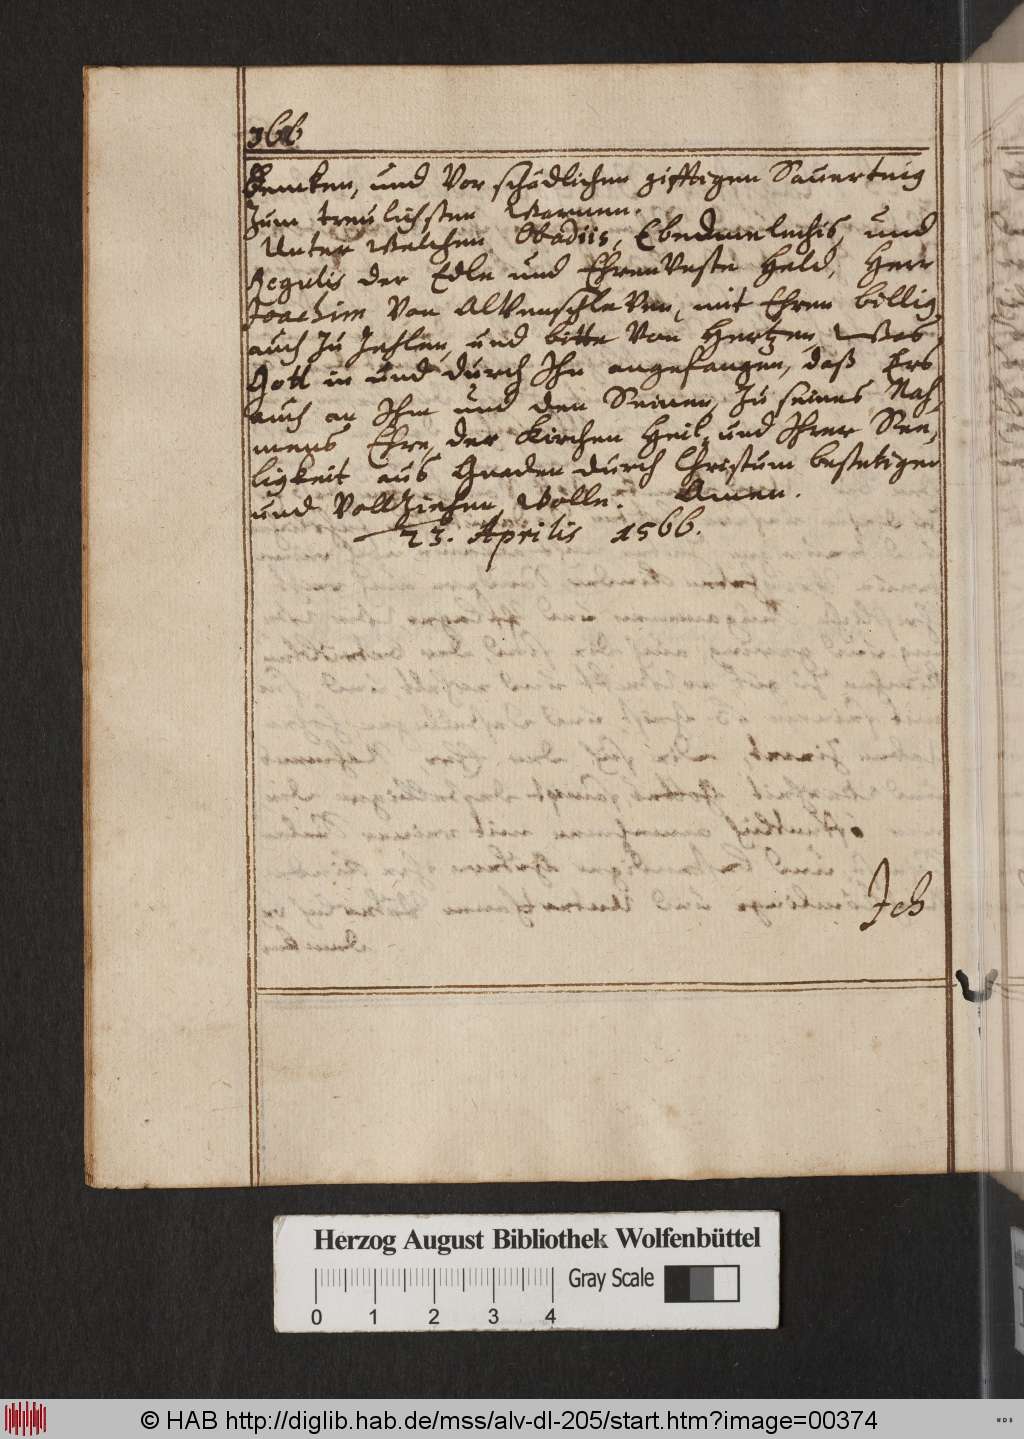 366
dencken, und vor schädlichen gifftigen Sauerteig
zum treulichsten warnen.
Unter welchen Obadiis, Ebedmelechis, und
Regulis der Edle und EhrenVeste Held, Herr
Joachim von Alvenschleven, mit Ehren billig
auch zu zehlen, und bitte von Hertzen, Was
Gott in und durch Ihn angefangen, daß Ers
auch an Ihm und den Seinen, zu seines Nah,
mens Ehre, der Kirchen Heil, und Ihrer See,
ligkeit aus Gnaden durch Christum bestetigen
und vollziehen wolle. Amen.
23. Aprilis 1566.
Ich
Herzog August Bibliothek Wolfenbüttel
0 1 2 3 4 Gray Scale
© HAB http://diglib.hab.de/mss/alv-dl-205/start.htm?image=00374